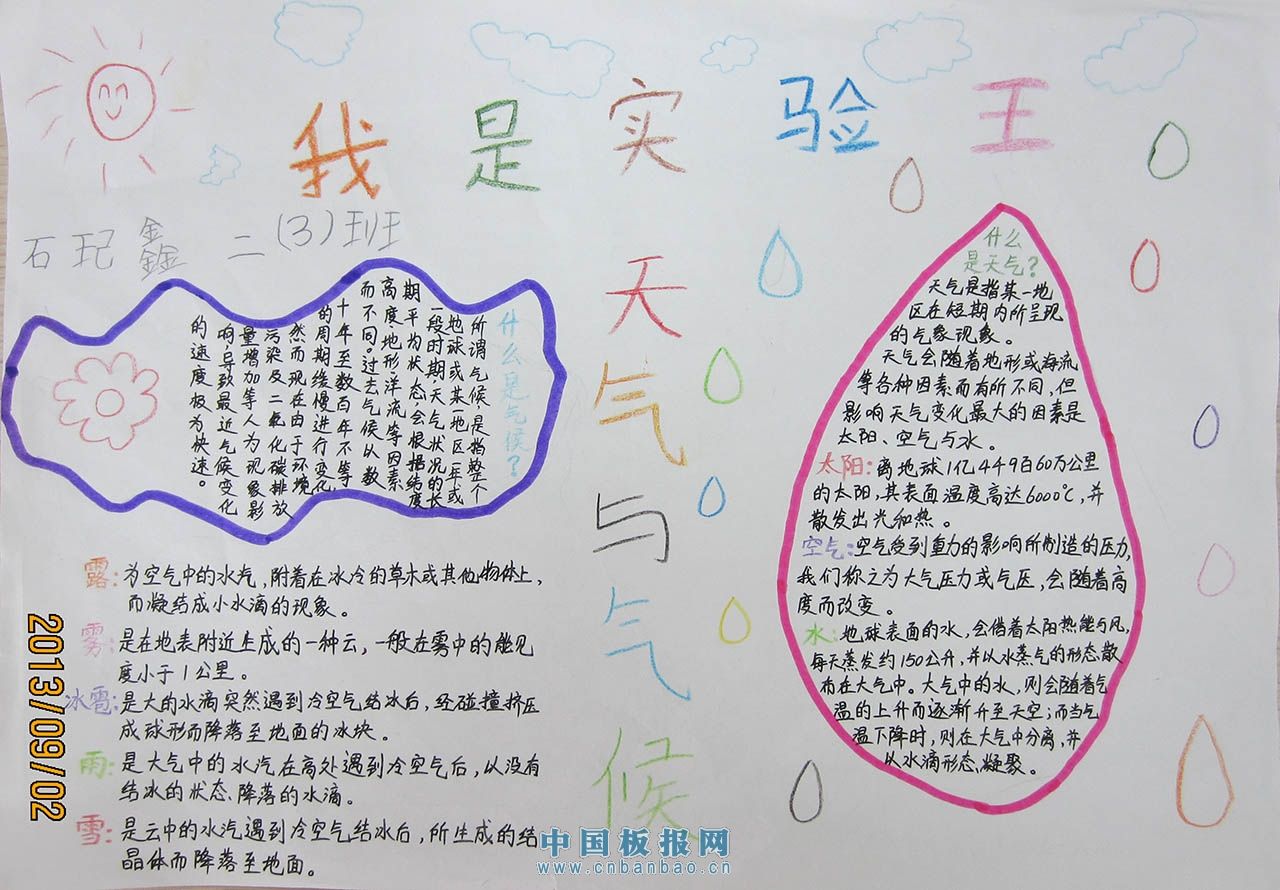 我是实验王
石玘鑫 二(3)班
天气与气候
什么是气候?
所谓气候,是指整个
地球或某一地区一年或
一段时期天气状况的长
期平均状态,会根据纬度
高度地形洋流等因素
而不同。过去气候以数
十年至数百年不等
的周期缓慢进行变化
然而现在由于环境
污染及二氧化碳排放
量增加等人为现象影
响导致最近气候变化
的速度极为快速。
露:为空气中的水汽,附着在冰冷的草木或其他物体上,
而凝结成小水滴的现象。
雾:是在地表附近上成的一种云,一般在雾中的能见
度小于1公里。
冰雹:是大的水滴突然遇到冷空气结冰后,经碰撞挤压
成球形而降落至地面的冰块。
雨:是大气中的水汽在高处遇到冷空气后,以没有
结冰的状态、降落的水滴。
雪:是云中的水汽遇到冷空气结冰后,所生成的结
晶体而降落至地面。
什么
是天气?
天气是指某一地
区在短期内所呈现
的气象现象。
天气会随着地形或海流
等各种因素而有所不同,但
影响天气变化最大的因素是
太阳、空气与水。
太阳:离地球1亿449百60万公里
的太阳,其表面温度高达6000℃,并
散发出光和热。
空气:空气受到重力的影响所制造的压力,
我们称之为大气压力或气压,会随着高
度而改变。
水:地球表面的水,会借着太阳热能与风,
每天蒸发约150公升,并以水蒸气的形态散
布在大气中。大气中的水,则会随着气
温的上升而逐渐升至天空;而当气
温下降时,则在大气中分离,并
以水滴形态凝聚。
2013/09/02
中国板报网
www.cnbanbao.cn